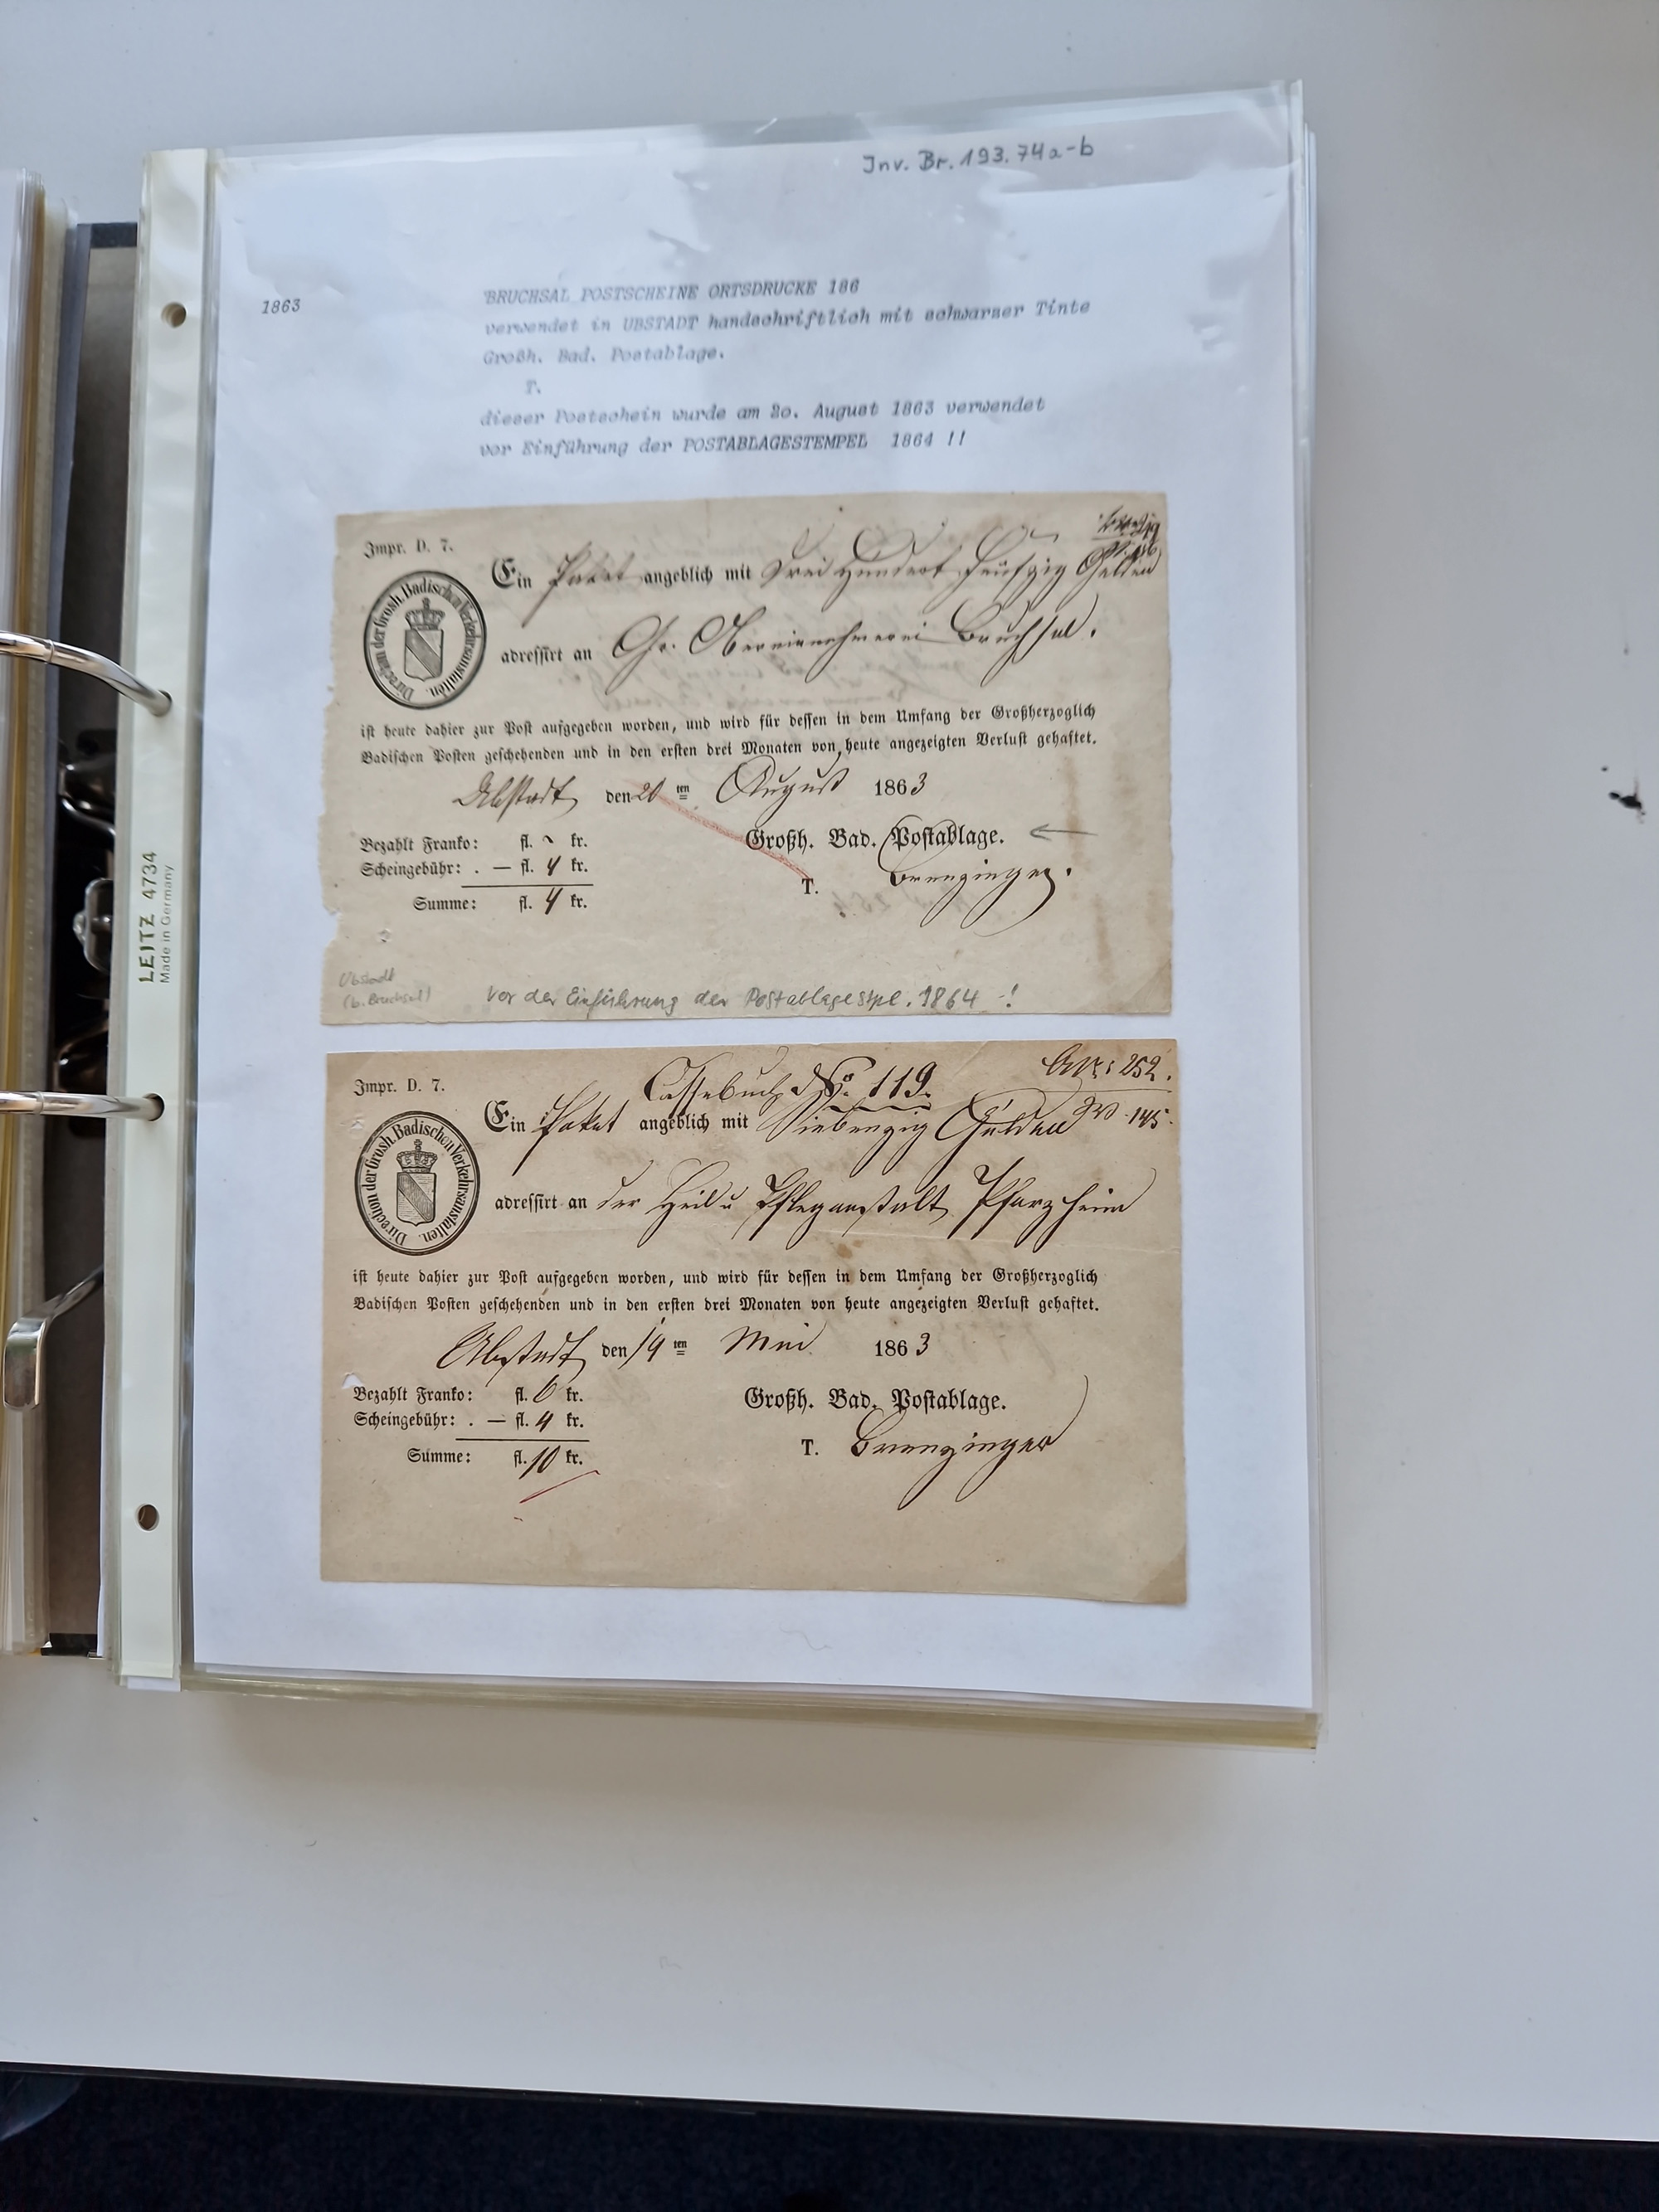 Inv. Br. 193.74a-b
1863
BRUCHSAL POSTSCHEINE ORTSDRUCKE 186
verwendet in UBSTADT handschriftlich mit schwarzer Tinte
Großh. Bad. Postablage.
T.
dieser Postschein wurde am 20. August 1863 verwendet
vor Einführung der POSTABLAGESTEMPEL 1864 !!
Impr. D. 7.
Ein Paket angeblich mit Drei Hundert Gulden
Direction der Grosh. Badischen Verkehrsanstalten.
adressirt an Gr. Obereinnehmerei Bruchsal.
ist heute dahier zur Post aufgegeben worden, und wird für dessen in dem Umfang der Großherzoglich
Badischen Posten geschehenden und in den ersten drei Monaten von heute angezeigten Verlust gehaftet.
Ubstadt den 20 ten August 1863
Bezahlt Franko: fl. kr.
Großh. Bad. Postablage.
Scheingebühr: . — fl. 4 kr.
T. Brenzinger.
Summe: fl. 4 kr.
Ubstadt
(b. Bruchsal)
Vor der Einführung der Postablagestpl. 1864 -!
LEITZ 4734
Made in Germany
Impr. D. 7.
Cassebuch No. 119.
252.
Ein Paket angeblich mit Siebenzig Gulden
145.
Direction der Grosh. Badischen Verkehrsanstalten.
adressirt an der Heil u Pfleganstalt Pforzheim
ist heute dahier zur Post aufgegeben worden, und wird für dessen in dem Umfang der Großherzoglich
Badischen Posten geschehenden und in den ersten drei Monaten von heute angezeigten Verlust gehaftet.
Ubstadt den 19 ten Mai 1863
Bezahlt Franko: fl. 6 kr.
Großh. Bad. Postablage.
Scheingebühr: . — fl. 4 kr.
T. Brenzinger
Summe: fl. 10 kr.